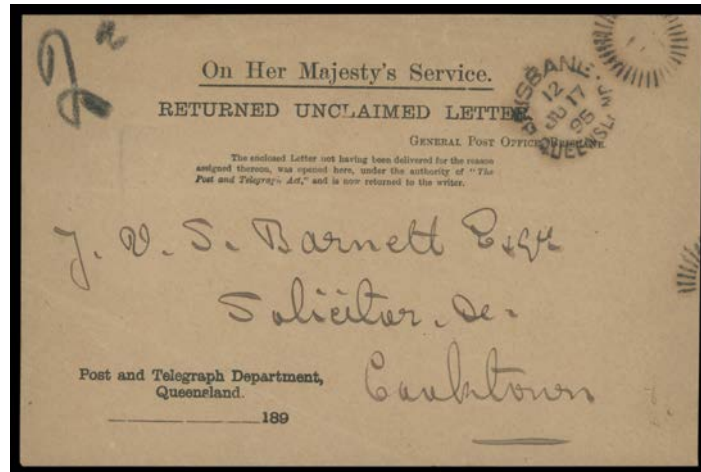 On Her Majesty's Service.
RETURNED UNCLAIMED LETTER
GENERAL POST OFFICE, BRISBANE
The enclosed Letter not having been delivered for the reason
assigned thereon, was opened here, under the authority of "The
Post and Telegraph Act," and is now returned to the writer.
BRISBANE
12
JU 17
95
QUEENSLAND
J. V. S. Barnett Esqr
Solicitor. &c.
Cooktown
Post and Telegraph Department,
Queensland.
189